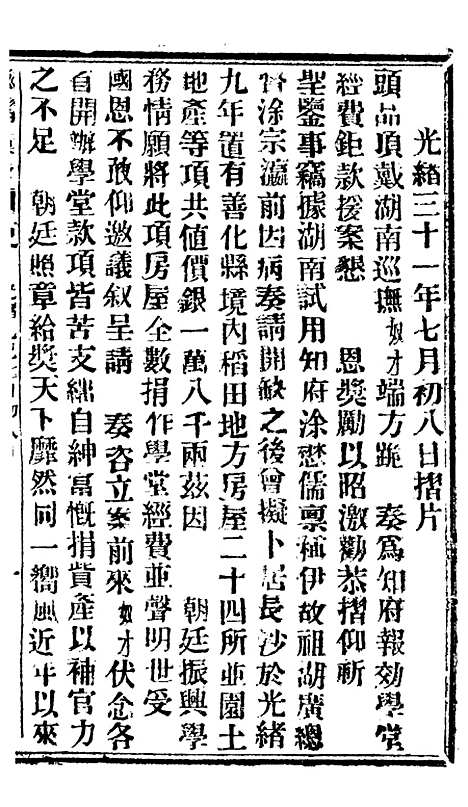 光緒三十一年七月初八日摺片
頭品頂戴湖南巡撫奴才端方跪　奏爲知府報効學堂
經費鉅款援案懇　恩奬勵以昭激勸恭摺仰祈
聖鑒事竊據湖南試用知府涂懋儒稟稱伊故祖湖廣總
督涂宗瀛前因病奏請開缺之後曾擬卜居長沙於光緒
九年置有善化縣境内稻田地方房屋二十四所並園土
地產等項共値價銀一萬八千兩茲因　朝廷振興學
務情願將此項房屋全數捐作學堂經費並聲明世受
國恩不敢仰邀議叙呈請　奏咨立案前來奴才伏念各
省開辦學堂款項皆苦支絀自紳富慨捐貲產以補官力
之不足　朝廷照章給奬天下靡然同一嚮風近年以來